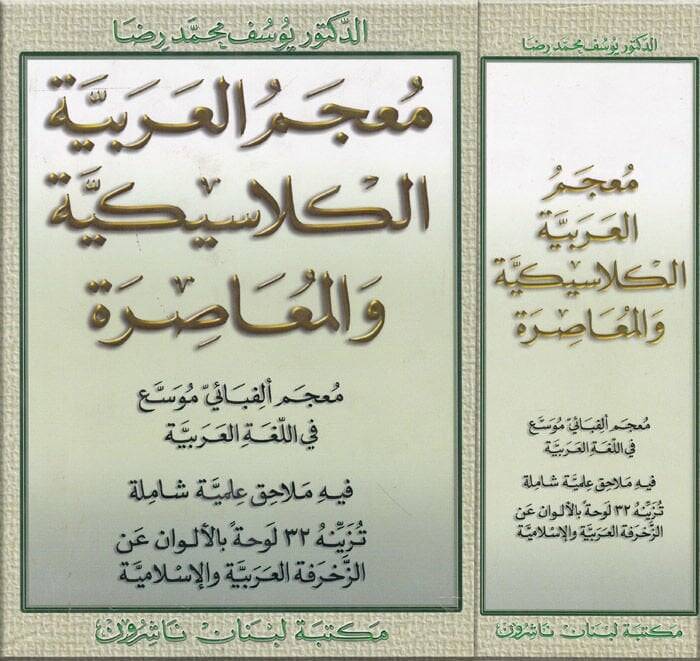 الدكتور يوسف محمد رضا
مُعجَمُ العَرَبيَّة
الكلاسيكيَّة
وَالمُعَاصِرَة
مُعجَم ألِفبَائيّ مُوَسَّع
في اللّغَة العَرَبيَّة
فيهِ مَلَاحِق عِلميَّة شَامِلة
تُزَيِّنُهُ ٣٢ لَوحَةً بالألوَان عَن
الزَّخرَفة العَرَبيَّة والإسْلاميَّة
مكتبة لبنان ناشرون
الدكتور يوسف محمد رضا
مُعجَمُ
العَرَبيَّة
الكلاسيكيَّة
وَالمُعَاصِرَة
مُعجَم ألِفبَائيّ مُوَسَّع
في اللّغَة العَرَبيَّة
فيهِ مَلَاحِق عِلميَّة شَامِلة
تُزَيِّنُهُ ٣٢ لَوحَةً بالألوَان عَن
الزَّخرَفة العَرَبيَّة والإسْلاميَّة
مكتبة لبنان ناشرون